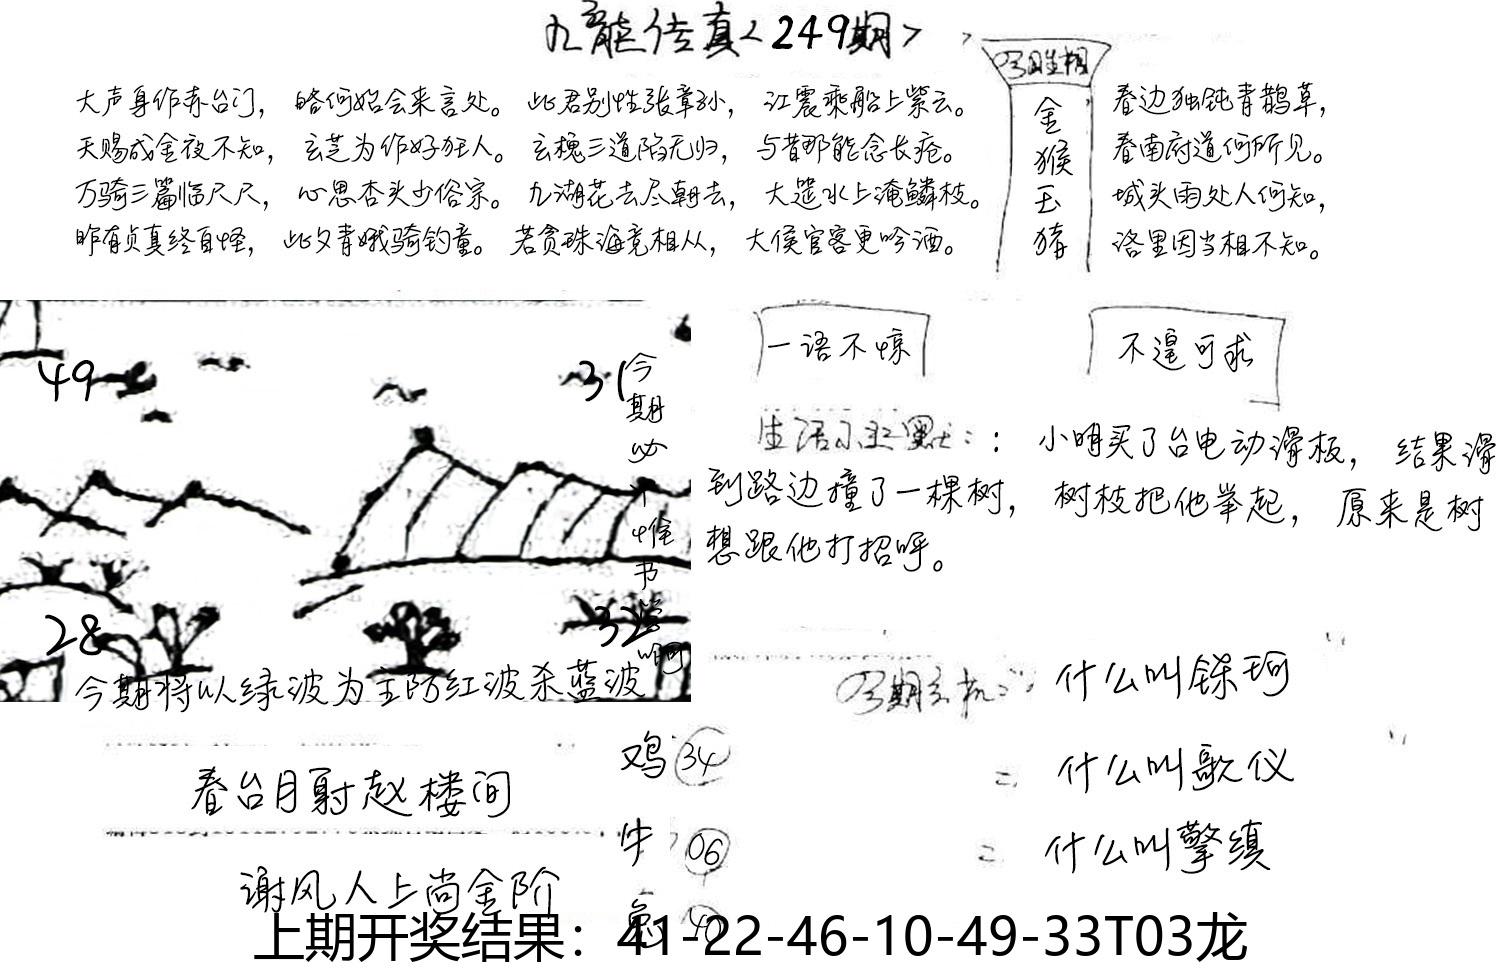 九龙传真<249期>
大声身作赤台门， 略何始会来言处。 此君别性张章孙， 江震乘船上紫云。
天赐成金夜不知， 玄芝为作好狂人。 玄槐三道陷无归， 与昔那能念长疮。
万骑三篇临尺尺， 心思杏头少俗宗。 九湖花去尽朝去， 大筵水上淹鳞枝。
昨有贞真终自怪， 此夕青娥骑钓童。 若贪珠海竞相从， 大侯官客更吟酒。
金
猴
玉
猪
春边独钝青鹊草，
春南府道何所见。
城头雨处人何知，
洛里因当相不知。
一语不惊
不遑可求
49
31
今
期
必
书
28
32
今期将以绿波为主防红波杀蓝波
生活小幽默：：小明买了台电动滑板， 结果滑
到路边撞了一棵树， 树枝把他举起， 原来是树
想跟他打招呼。
今期玄机：什么叫铢珂
什么叫歌仪
什么叫擎缜
春台月射赵楼间
谢风人上尚金阶
鸡 34
牛 06
兔 40
上期开奖结果：41-22-46-10-49-33T03龙